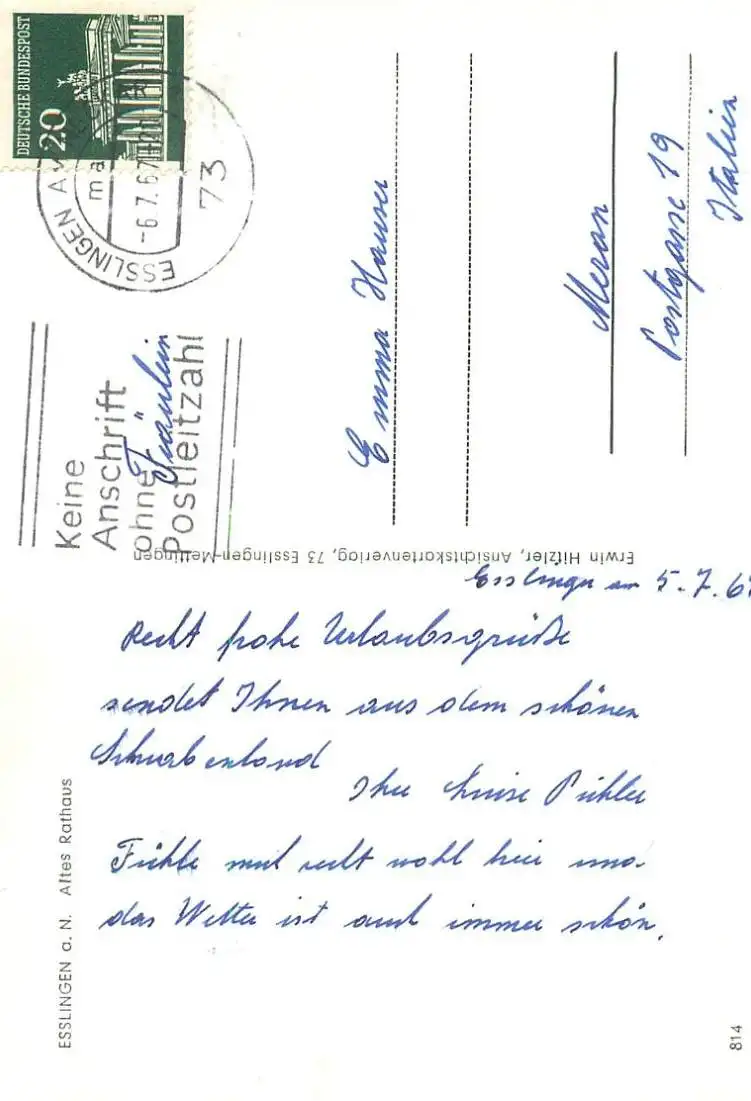 DEUTSCHE BUNDESPOST
20
ESSLINGEN
-6.7.67
73
Keine
Anschrift
ohne
Postleitzahl
Fräulein
Emma Hauser
Meran
Postgasse 19
Italien
Erwin Hitzler, Ansichtskartenverlag, 73 Esslingen-Mettingen
Esslingen am 5.7.67
Recht frohe Urlaubsgrüße
sendet Ihnen aus dem schönen
Schwabenland
Ihre Luise Pichler
Fühle mich recht wohl hier und
das Wetter ist auch immer schön.
ESSLINGEN a. N. Altes Rathaus
814